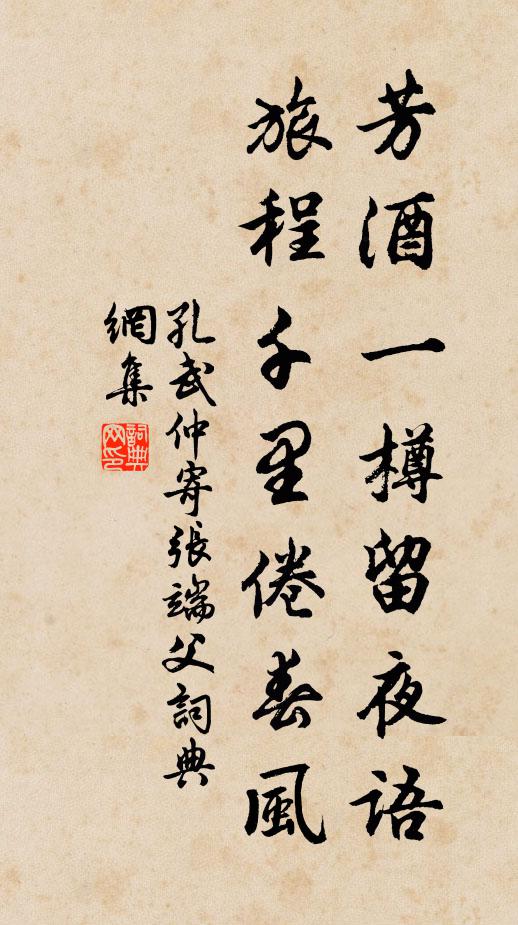 芳酒一樽留夜語
旅程千里倦春風
孔武仲寄張端父詞典
網集
詞典
网印